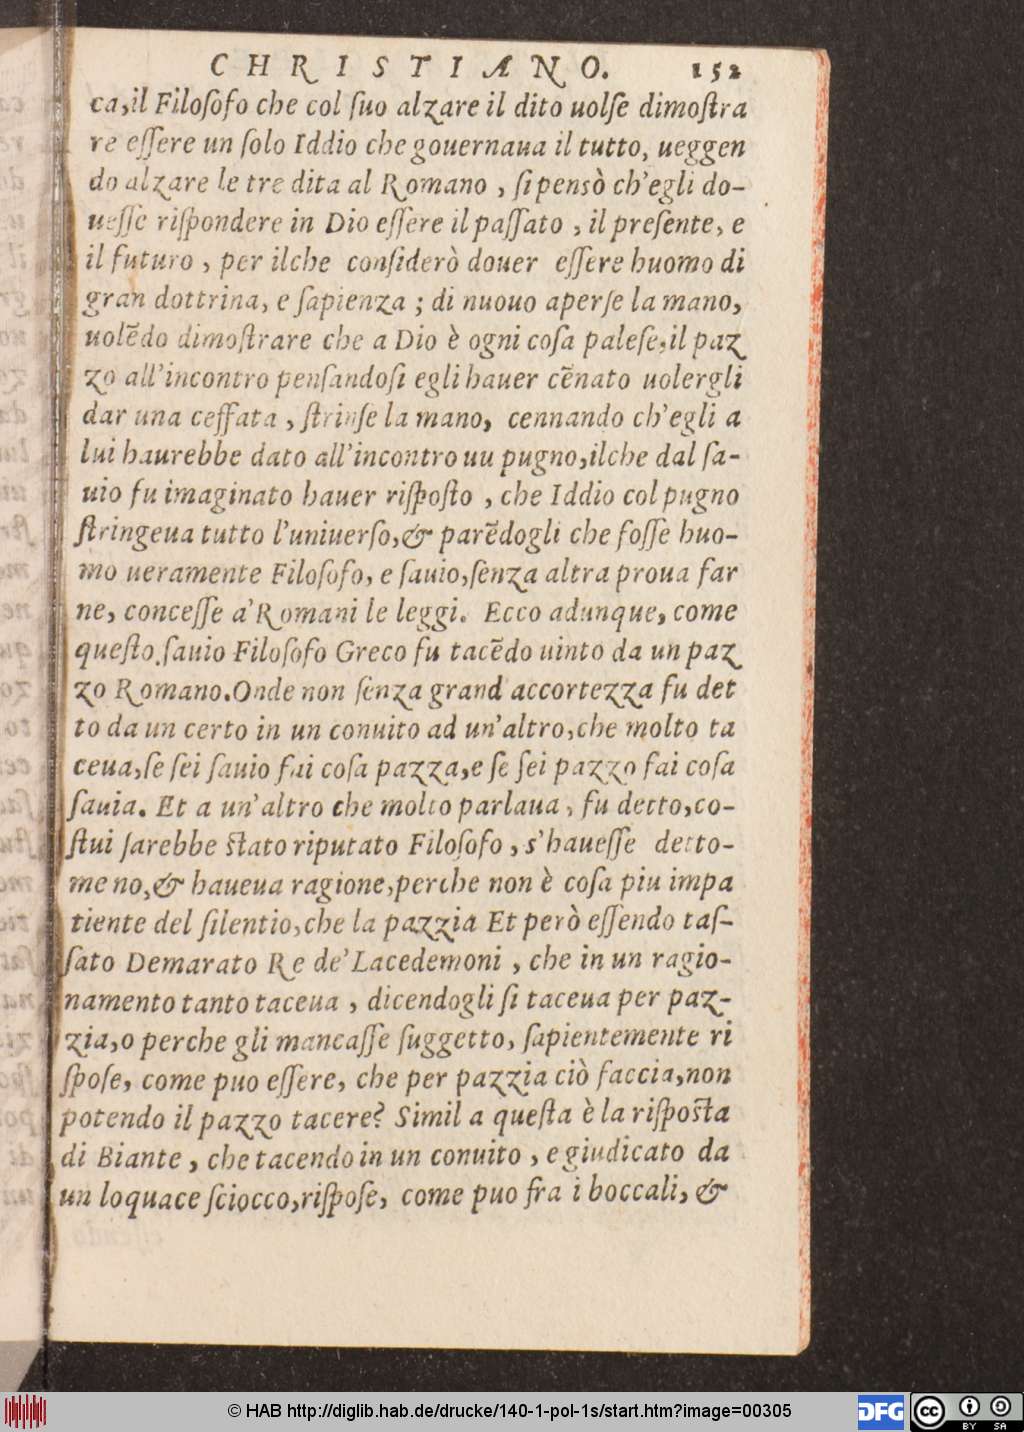 CHRISTIANO. 152
ca,il Filoſofo che col ſuo alzare il dito uolſe dimoſtra
re eſſere un ſolo Iddio che gouernaua il tutto, ueggen
do alzare le tre dita al Romano , ſi pensò ch'egli do-
ueſſe riſpondere in Dio eſſere il paſſato , il preſente, e
il futuro , per ilche conſiderò douer eſſere huomo di
gran dottrina, e ſapienza ; di nuouo aperſe la mano,
uolẽdo dimoſtrare che a Dio è ogni coſa paleſe,il paz
zo all'incontro penſandoſi egli hauer cẽnato uolergli
dar una ceffata , ſtrinſe la mano, cennando ch'egli a
lui haurebbe dato all'incontro uu pugno,ilche dal ſa-
uio fu imaginato hauer riſpoſto , che Iddio col pugno
ſtringeua tutto l'uniuerſo,& parẽdogli che foſſe huo-
mo ueramente Filoſofo, e ſauio,ſenza altra proua far
ne, conceſſe a'Romani le leggi. Ecco adunque, come
queſto ſauio Filoſofo Greco fu tacẽdo uinto da un paz
zo Romano.Onde non ſenza grand accortezza fu det
to da un certo in un conuito ad un'altro,che molto ta
ceua,ſe ſei ſauio fai coſa pazza,e ſe ſei pazzo fai coſa
ſauia. Et a un'altro che molto parlaua , fu detto,co-
ſtui ſarebbe ſtato riputato Filoſofo , s'haueſſe detto-
meno,& haueua ragione,perche non è coſa piu impa
tiente del ſilentio,che la pazzia Et però eſſendo taſ-
ſato Demarato Re de'Lacedemoni , che in un ragio-
namento tanto taceua , dicendogli ſi taceua per paz-
zia,o perche gli mancaſſe ſuggetto, ſapientemente ri
ſpoſe, come puo eſſere, che per pazzia ciò faccia,non
potendo il pazzo tacere? Simil a queſta è la riſpoſta
di Biante , che tacendo in un conuito , e giudicato da
un loquace ſciocco,riſpoſe, come puo fra i boccali, &
© HAB http://diglib.hab.de/drucke/140-1-pol-1s/start.htm?image=00305
DFG
cc
BY SA